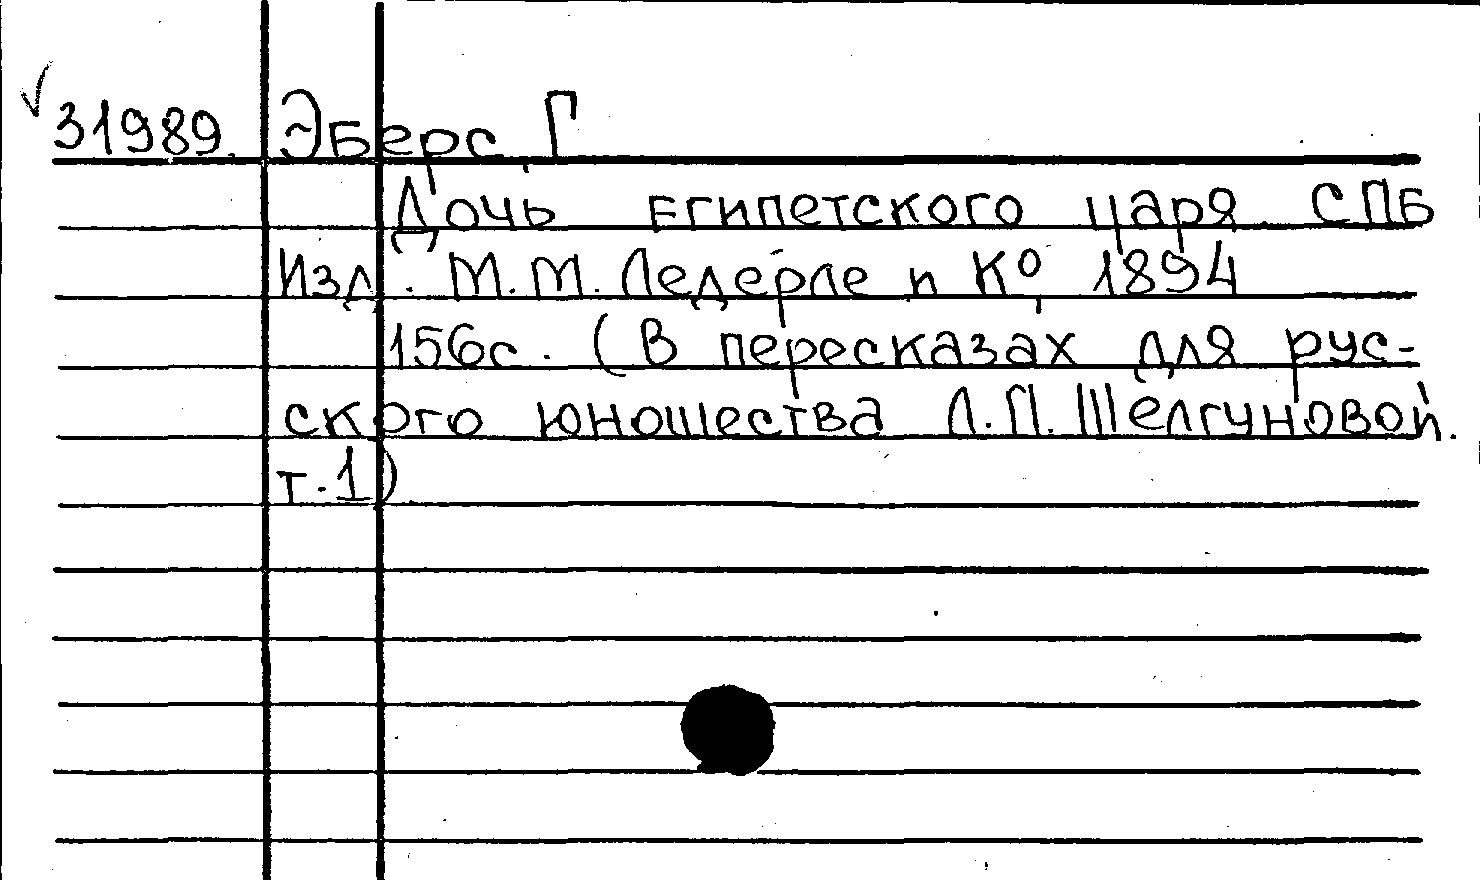 √ 31989. Эберс, Г
Дочь египетского царя. СПБ
Изд. М.М. Ледерле и К°, 1894
156с. (В пересказах для рус-
ского юношества Л.П. Шелгуновой.
т.1)